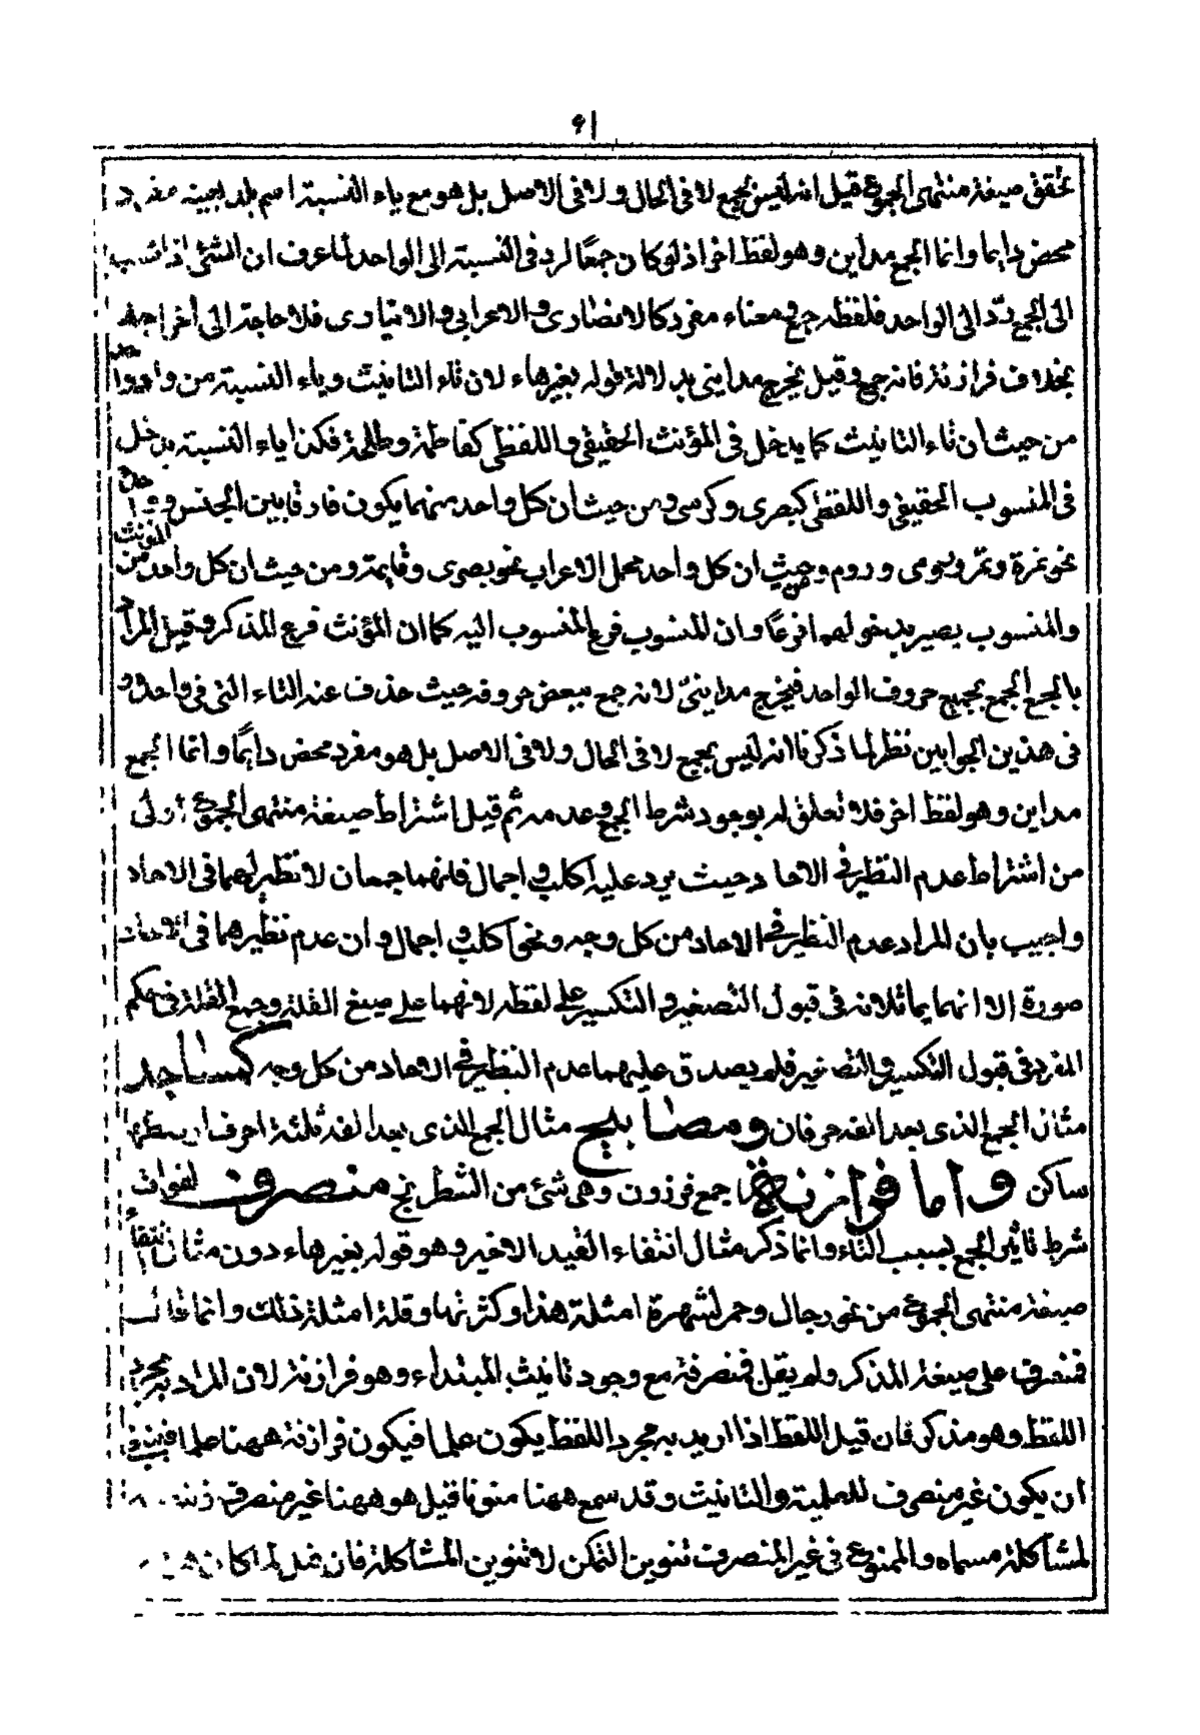 ٩١
تحقق صيغة منتهى الجموع قيل انه ليس بجمع لا فى الحال ولا فى الاصل بل هو مع ياء النسبة اسم بلد بعينه مفرد
محض دايما وانما الجمع مداين وهو لفظ اخر اذ لو كان جمعًا لرد فى النسبة الى الواحد لما عرف ان الشئ اذا نسب
الى الجمع ردّ الى الواحد فلفظه جمع ومعناه مفرد كالانصارى والاعرابى والانبارى فلا حاجة الى أخراجه
بخلاف فرازنة فانه جمع وقيل يخرج مداينى بدلالة قوله بغير هاء لان تاء التانيث وياء النسبة من واد واحد
من حيث ان تاء التانيث كما يدخل فى المؤنث الحقيقى واللفظى كفاطمة وطلحة فكذا ياء النسبة يدخل
فى المنسوب الحقيقى واللفظى كبصرى وكرسى ومن حيث ان كل واحد منهما يكون فارقا بين الجنس وواحده
نحو تمرة وتمر ورومى وروم ومن حيث ان كل واحد محل الاعراب نحو بصرى وقايمة ومن حيث ان كل واحد من المؤنث
والمنسوب يصير بدخولهما فرعًا وان المنسوب فرع المنسوب اليه كما ان المؤنث فرع المذكر وقيل المراد
بالجمع الجمع بجميع حروف الواحد فيخرج مداينىّ لانه جمع ببعض حروفه حيث حذف عنه التاء التى فى واحده و
فى هذين الجوابين نظر لما ذكرنا انه ليس بجمع لا فى الحال ولا فى الاصل بل هو مفرد محض دايمًا وانما الجمع
مداين وهو لفظ اخر فلا تعلق له بوجود شرط الجمع وعدمه ثم قيل اشتراط صيغة منتهى الجموع أولى
من اشتراط عدم النظير فى الاحاد حيث يرد عليه اكلب واجمال فانهما جمعان لا نظير لهما فى الاحاد
واجيب بان المراد عدم النظير فى الاحاد من كل وجه ونحو اكلب واجمال وان عدم نظيرهما فى الاحاد
صورة الا انهما يماثلانه فى قبول التصغير والتكسير على لفظه لانهما على صيغ القلة وجمع القلة فى حكم
المفرد فى قبول التكسير والتصغير فلم يصدق عليهما عدم النظير فى الاحاد من كل وجه كمساجد
مثال الجمع الذى بعد الفه حرفان ومصابيح مثال الجمع الذى بعد الفه ثلثة احرف اوسطها
ساكن واما فرازنة جمع فرزون وهى شئ من الشطرنج منصرف لفوات
شرط تأثير الجمع بسبب التاء وانما ذكر مثال انتفاء القيد الاخير وهو قوله بغير هاء دون مثال انتفاء
صيغة منتهى الجموع من نحو رجال وحمر لشهرة امثلة هذا وكثرتها وقلة امثلة ذلك وانما قال
فمنصرف على صيغة المذكر ولم يقل فمنصرفة مع وجود تانيث المبتداء وهو فرازنة لان المراد به مجرد
اللفظ وهو مذكر فان قيل اللفظ اذا اريد به مجرد اللفظ يكون علما فيكون فرازنة ههنا علما فينبغى
ان يكون غير منصرف للعلمية والتانيث وقد سمع ههنا منونا قيل هو ههنا غير منصرف
لمشاكلة مسماه والممنوع فى غير المنصرف تنوين التمكن لا تنوين المشاكلة فان قيل لم كان